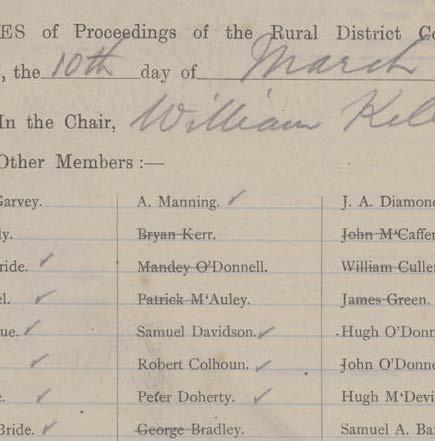 ES of Proceedings of the Rural District Co
, the 10th day of March
In the Chair, William Kel
Other Members :—
Garvey. A. Manning. ✓ J. A. Diamon
ly. Bryan Kerr. John M‘Caffer
ride. ✓ Mandey O'Donnell. William Culle
el. ✓ Patrick M‘Auley. James Green.
ue. ✓ Samuel Davidson. ✓ Hugh O'Donn
✓ Robert Colhoun. ✓ John O'Donne
e. ✓ Peter Doherty. ✓ Hugh M‘Devi
Bride. ✓ George Bradley. Samuel A. Ba